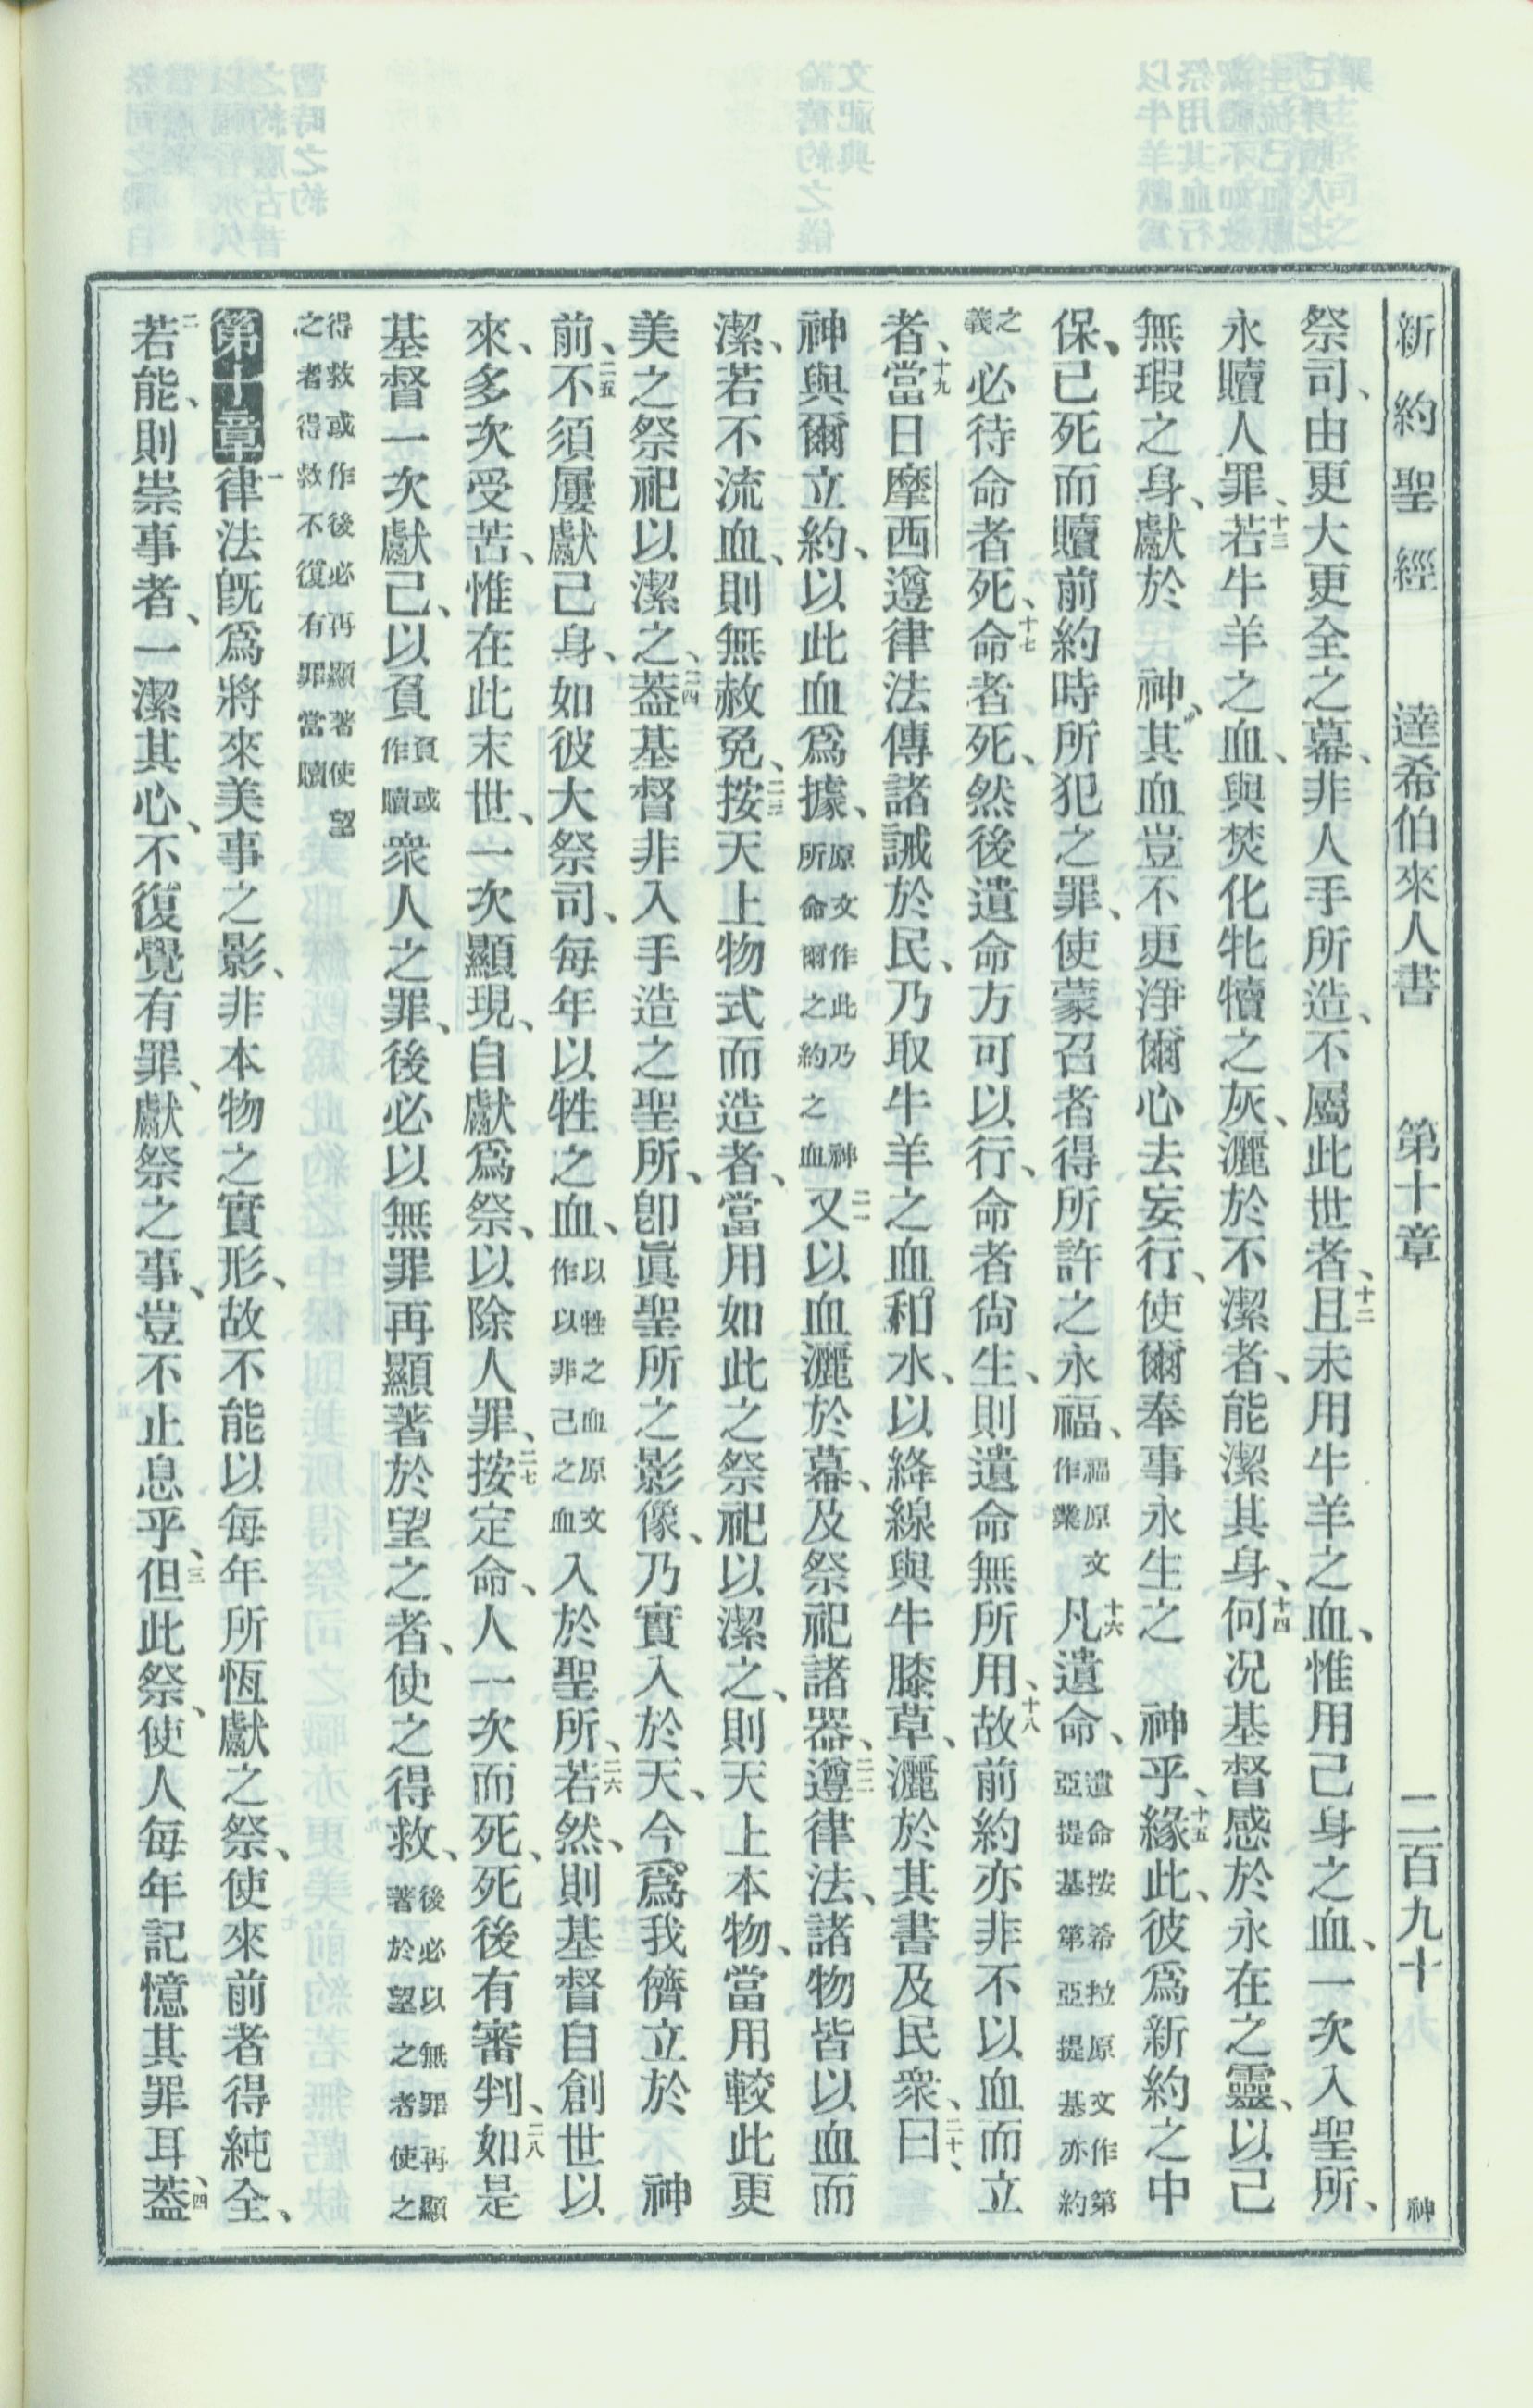 新約聖經 達希伯來人書 第十章 二百九十 神
祭司、由更大更全之幕、非人手所造、不屬此世者、十二且未用牛羊之血、惟用己身之血、一次入聖所、
永贖人罪、十三若牛羊之血、與焚化牝犢之灰、灑於不潔者、能潔其身、十四何況基督感於永在之靈、以己
無瑕之身、獻於 神、其血豈不更淨爾心去妄行、使爾奉事永生之 神乎、十五緣此、彼爲新約之中
保、已死而贖前約時所犯之罪、使蒙召者得所許之永福、福原文作業十六凡遺命、遺命按希拉原文作第亞提基第亞提基亦約
之義必待命者死、十七命者死、然後遺命方可以行、命者尙生、則遺命無所用、十八故前約亦非不以血而立
者、十九當日摩西遵律法傳諸誡於民、乃取牛羊之血、和水、以絳線與牛膝草、灑於其書及民衆、二十曰、
神與爾立約、以此血爲據、原文作此乃神所命爾之約之血二一又以血灑於幕、及祭祀諸器、二二遵律法、諸物皆以血而
潔、若不流血、則無赦免、二三按天上物式而造者、當用如此之祭祀以潔之、則天上本物、當用較此更
美之祭祀以潔之、二四蓋基督非入手造之聖所、卽眞聖所之影像、乃實入於天、今爲我儕立於 神
前、二五不須屢獻己身、如彼大祭司、每年以牲之血、以牲之血原文作以非己之血入於聖所、二六若然、則基督自創世以
來、多次受苦、惟在此末世、一次顯現、自獻爲祭、以除人罪、二七按定命、人一次而死、死後有審判、二八如是
基督一次獻己、以負負或作贖衆人之罪、後必以無罪再顯著於望之者、使之得救、後必以無罪再顯著於望之者使之
得救或作後必再顯著使望之者得救不復有罪當贖
第十章 一律法旣爲將來美事之影、非本物之實形、故不能以每年所恆獻之祭、使來前者得純全、
二若能、則崇事者、一潔其心、不復覺有罪、獻祭之事、豈不止息乎、三但此祭、使人每年記憶其罪耳、四蓋